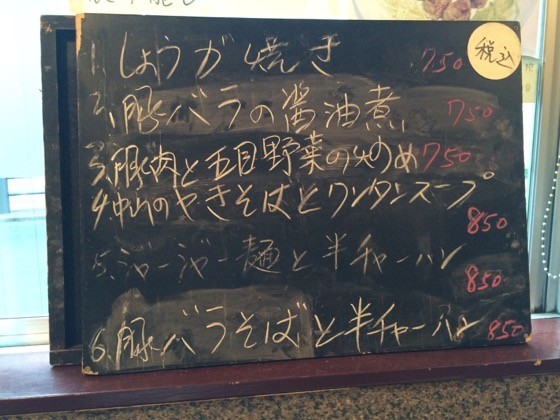 税込
1. しょうが焼き 750
2. 豚バラの醤油煮 750
3. 豚肉と五目野菜の炒め 750
やきそばとワンタンスープ
850
5. ジャージャー麺と半チャーハン
850
6. 豚バラそばと半チャーハン 850